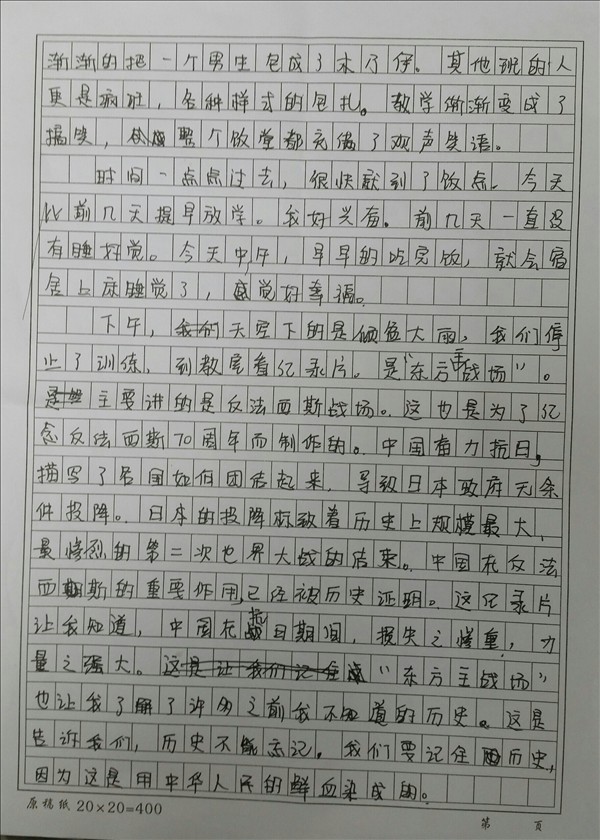 渐渐的把一个男生包成了木乃伊。其他班的人
更是疯狂，各种样式的包扎。教学渐渐变成了
搞笑，整个饭堂都充满了欢声笑语。
时间一点点过去，很快就到了饭点。今天
比前几天提早放学。我好兴奋。前几天一直没
有睡好觉。今天中午，早早的吃完饭，就会宿
舍上床睡觉了，感觉好幸福。
下午，天空下的是倾盆大雨，我们停
止了训练，到教室看纪录片。是“东方主战场”。
主要讲的是反法西斯战场。这也是为了纪
念反法西斯70周年而制作的。中国奋力抗日，
描写了各国如何团结起来，导致日本政府无条
件投降。日本的投降标致着历史上规模最大，
最惨烈的第二次世界大战的结束。中国在反法
西斯的重要作用，已经被历史证明。这纪录片
让我知道，中国在抗日期间，损失之惨重，力
量之强大。“东方主战场”
也让我了解了许多之前我不知道的历史。这是
告诉我们，历史不能忘记。我们要记住历史，
因为这是用中华人民的鲜血染成的。
原稿纸 20×20=400
第 页